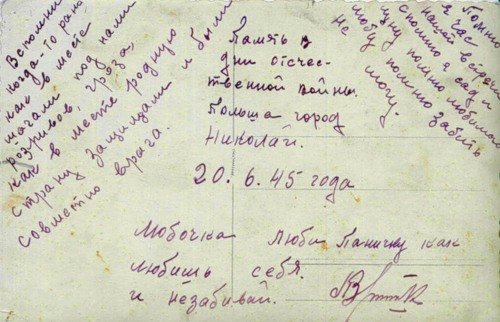 Вспомни
когда-то рано
как в месте
шагали под нами
розривов, гроза,
как в месте родную
страну защищали и были
совместно врага.
Память в
дни отсчес-
твенной войны.
Польша город
Николай.
20. 6. 45 года
Помни
я час
нашей встречи
спомню я саду и
одну помню любишь
тобу помню забыть
не могу.
Любочка люби Паничку как
любишь себя.
и незабивай.